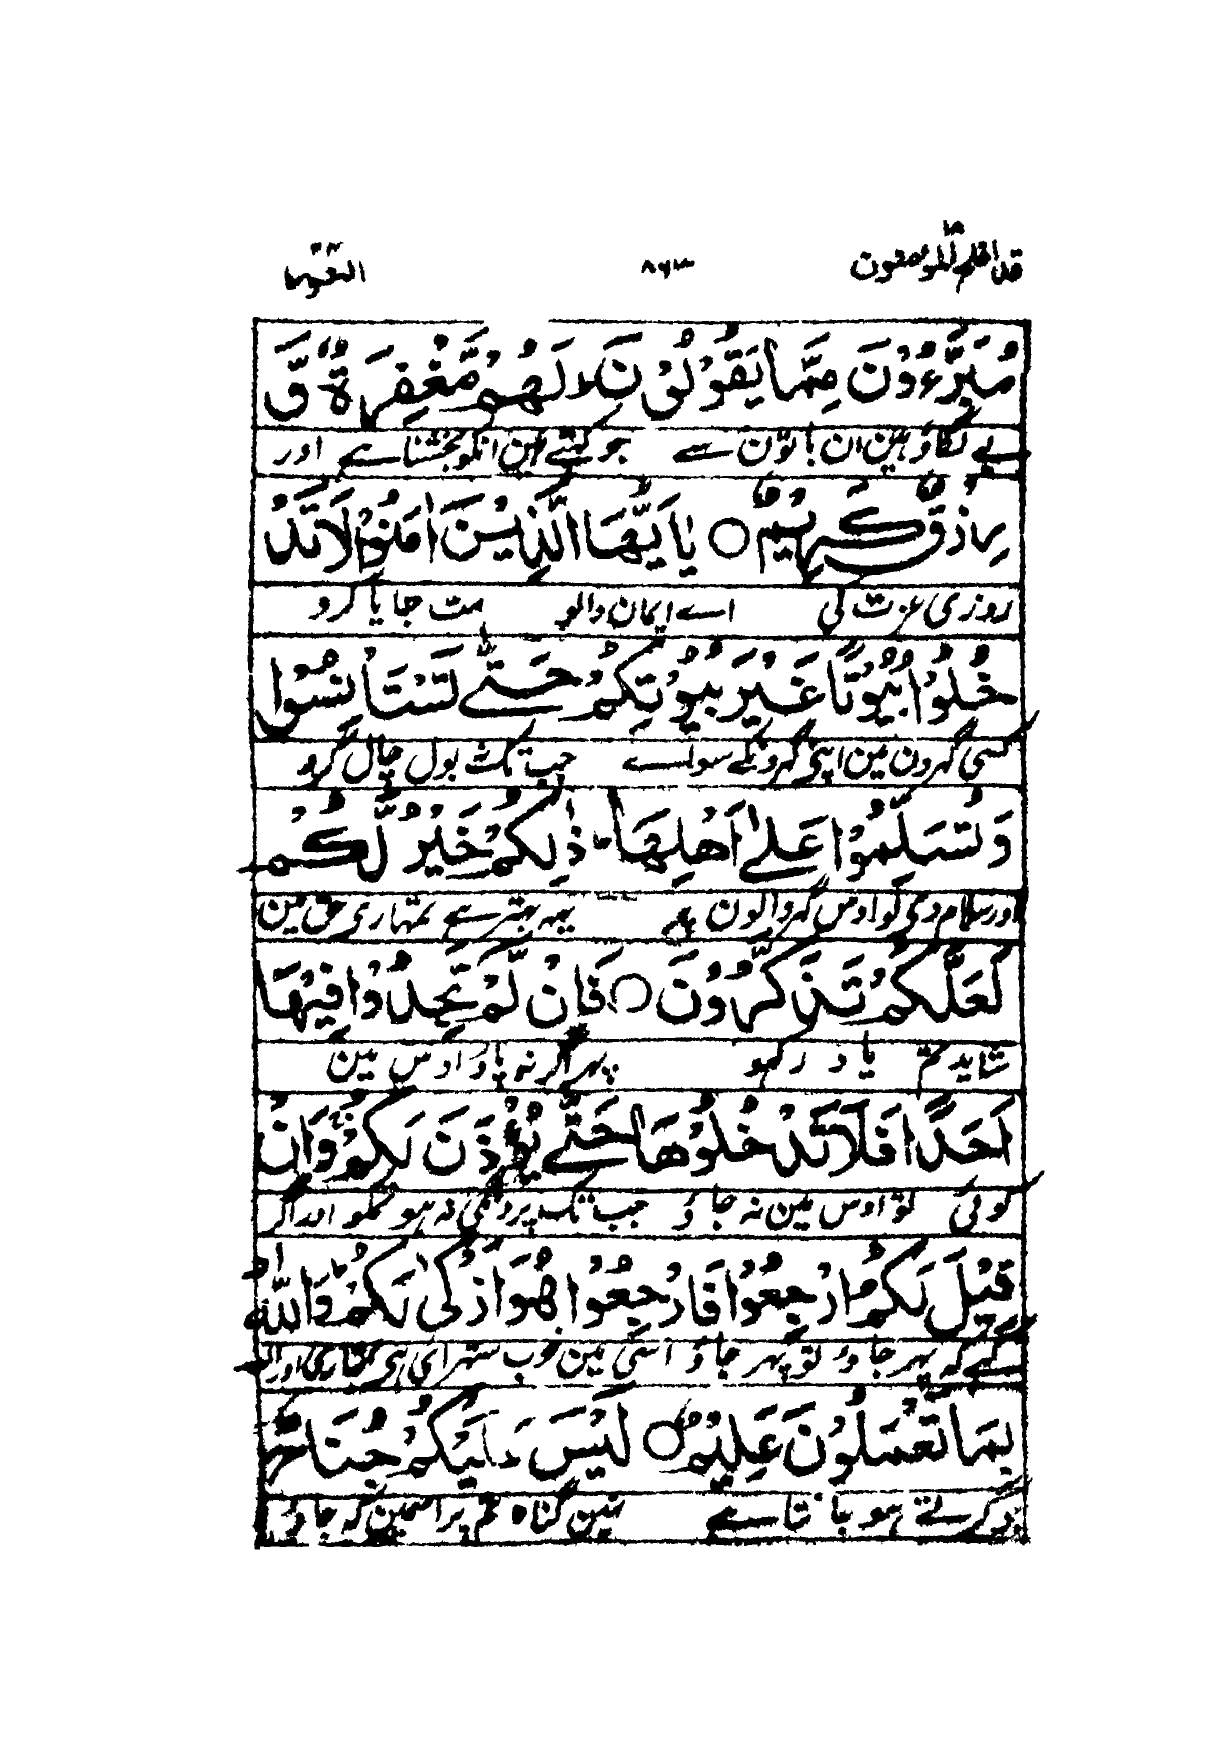 قد افلح المؤمنون ۱۸ ۸۶۳ النور ۲۴
مُبَرَّءُوْنَ مِمَّا يَقُوْلُوْنَ لَهُمْ مَّغْفِرَةٌ وَّ
بے لگاؤ ہین ان باتوں سے جو کہتے ہین انکو بخشنا ہے اور
رِزْقٌ كَرِيْمٌ ○ يٰاَيُّهَا الَّذِيْنَ اٰمَنُوْا لَا تَدْ
روزی عزت کی اے ایمان والو مت جایا کرو
خُلُوْا بُيُوْتًا غَيْرَ بُيُوْتِكُمْ حَتّٰى تَسْتَأْنِسُوْا
کسی گہرون مین اپنی گہرونکے سواے جب تک نہ بول چال کرو
وَتُسَلِّمُوْا عَلٰى اَهْلِهَا ذٰلِكُمْ خَيْرٌ لَّكُمْ
اور سلام دی لو اوس گہر والون پر یہہ بہتر ہے تمہاری حق مین
لَعَلَّكُمْ تَذَكَّرُوْنَ ○ فَاِنْ لَّمْ تَجِدُوْا فِيْهَا
شاید تم یاد رکہو پہر اگر نہ پاؤ اوس مین
اَحَدًا فَلَا تَدْخُلُوْهَا حَتّٰى يُؤْذَنَ لَكُمْ وَاِنْ
کوئی تو اوس مین نہ جاؤ جب تک پروانگی نہ ہو تمکو اور اگر
قِيْلَ لَكُمُ ارْجِعُوْا فَارْجِعُوْا هُوَ اَزْكٰى لَكُمْ وَاللّٰهُ
کہے کہ پہر جاؤ تو پہر جاؤ اسی مین خوب ستہرای ہی تمہاری اور اللہ
بِمَا تَعْمَلُوْنَ عَلِيْمٌ ○ لَيْسَ عَلَيْكُمْ جُنَاحٌ
جو کرتے ہو جانتا ہے نہین گناہ تم پر اسمین کہ جاؤ